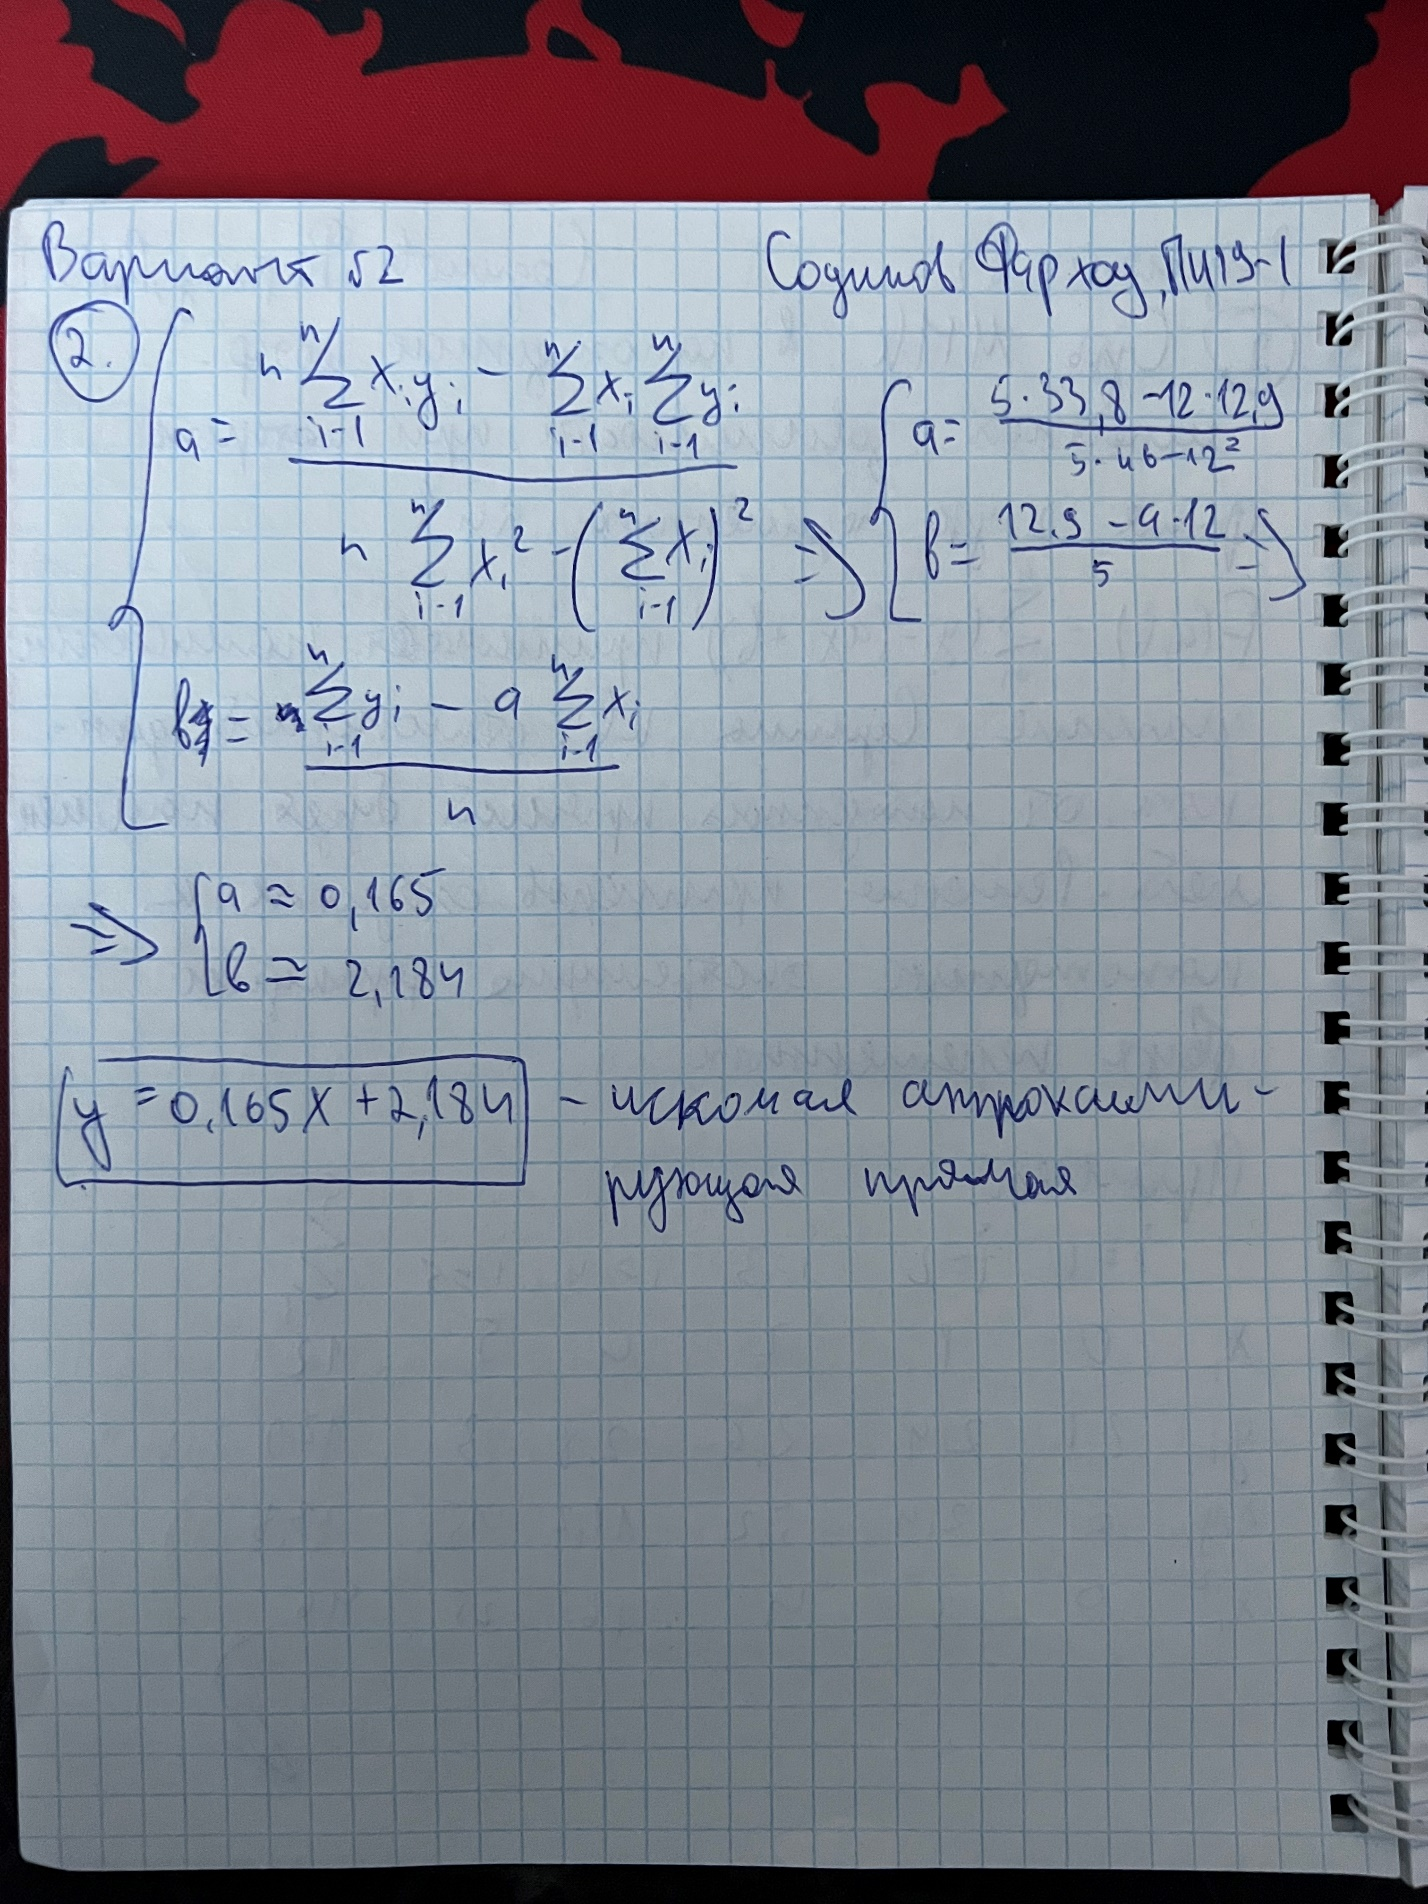 Вариант №2 Содиков Фарход, ПИ19-1
2.
a = (n ∑_{i-1}^{n} x_i y_i - ∑_{i-1}^{n} x_i ∑_{i-1}^{n} y_i) / (n ∑_{i-1}^{n} x_i^2 - (∑_{i-1}^{n} x_i)^2)
b = (∑_{i-1}^{n} y_i - a ∑_{i-1}^{n} x_i) / n
=> a = (5·33,8 - 12·12,9) / (5·46 - 12^2)
b = (12,9 - a·12) / 5 =>
=> a ≈ 0,165
b ≃ 2,184
y = 0,165x + 2,184 - искомая аппроксими-
рующая прямая